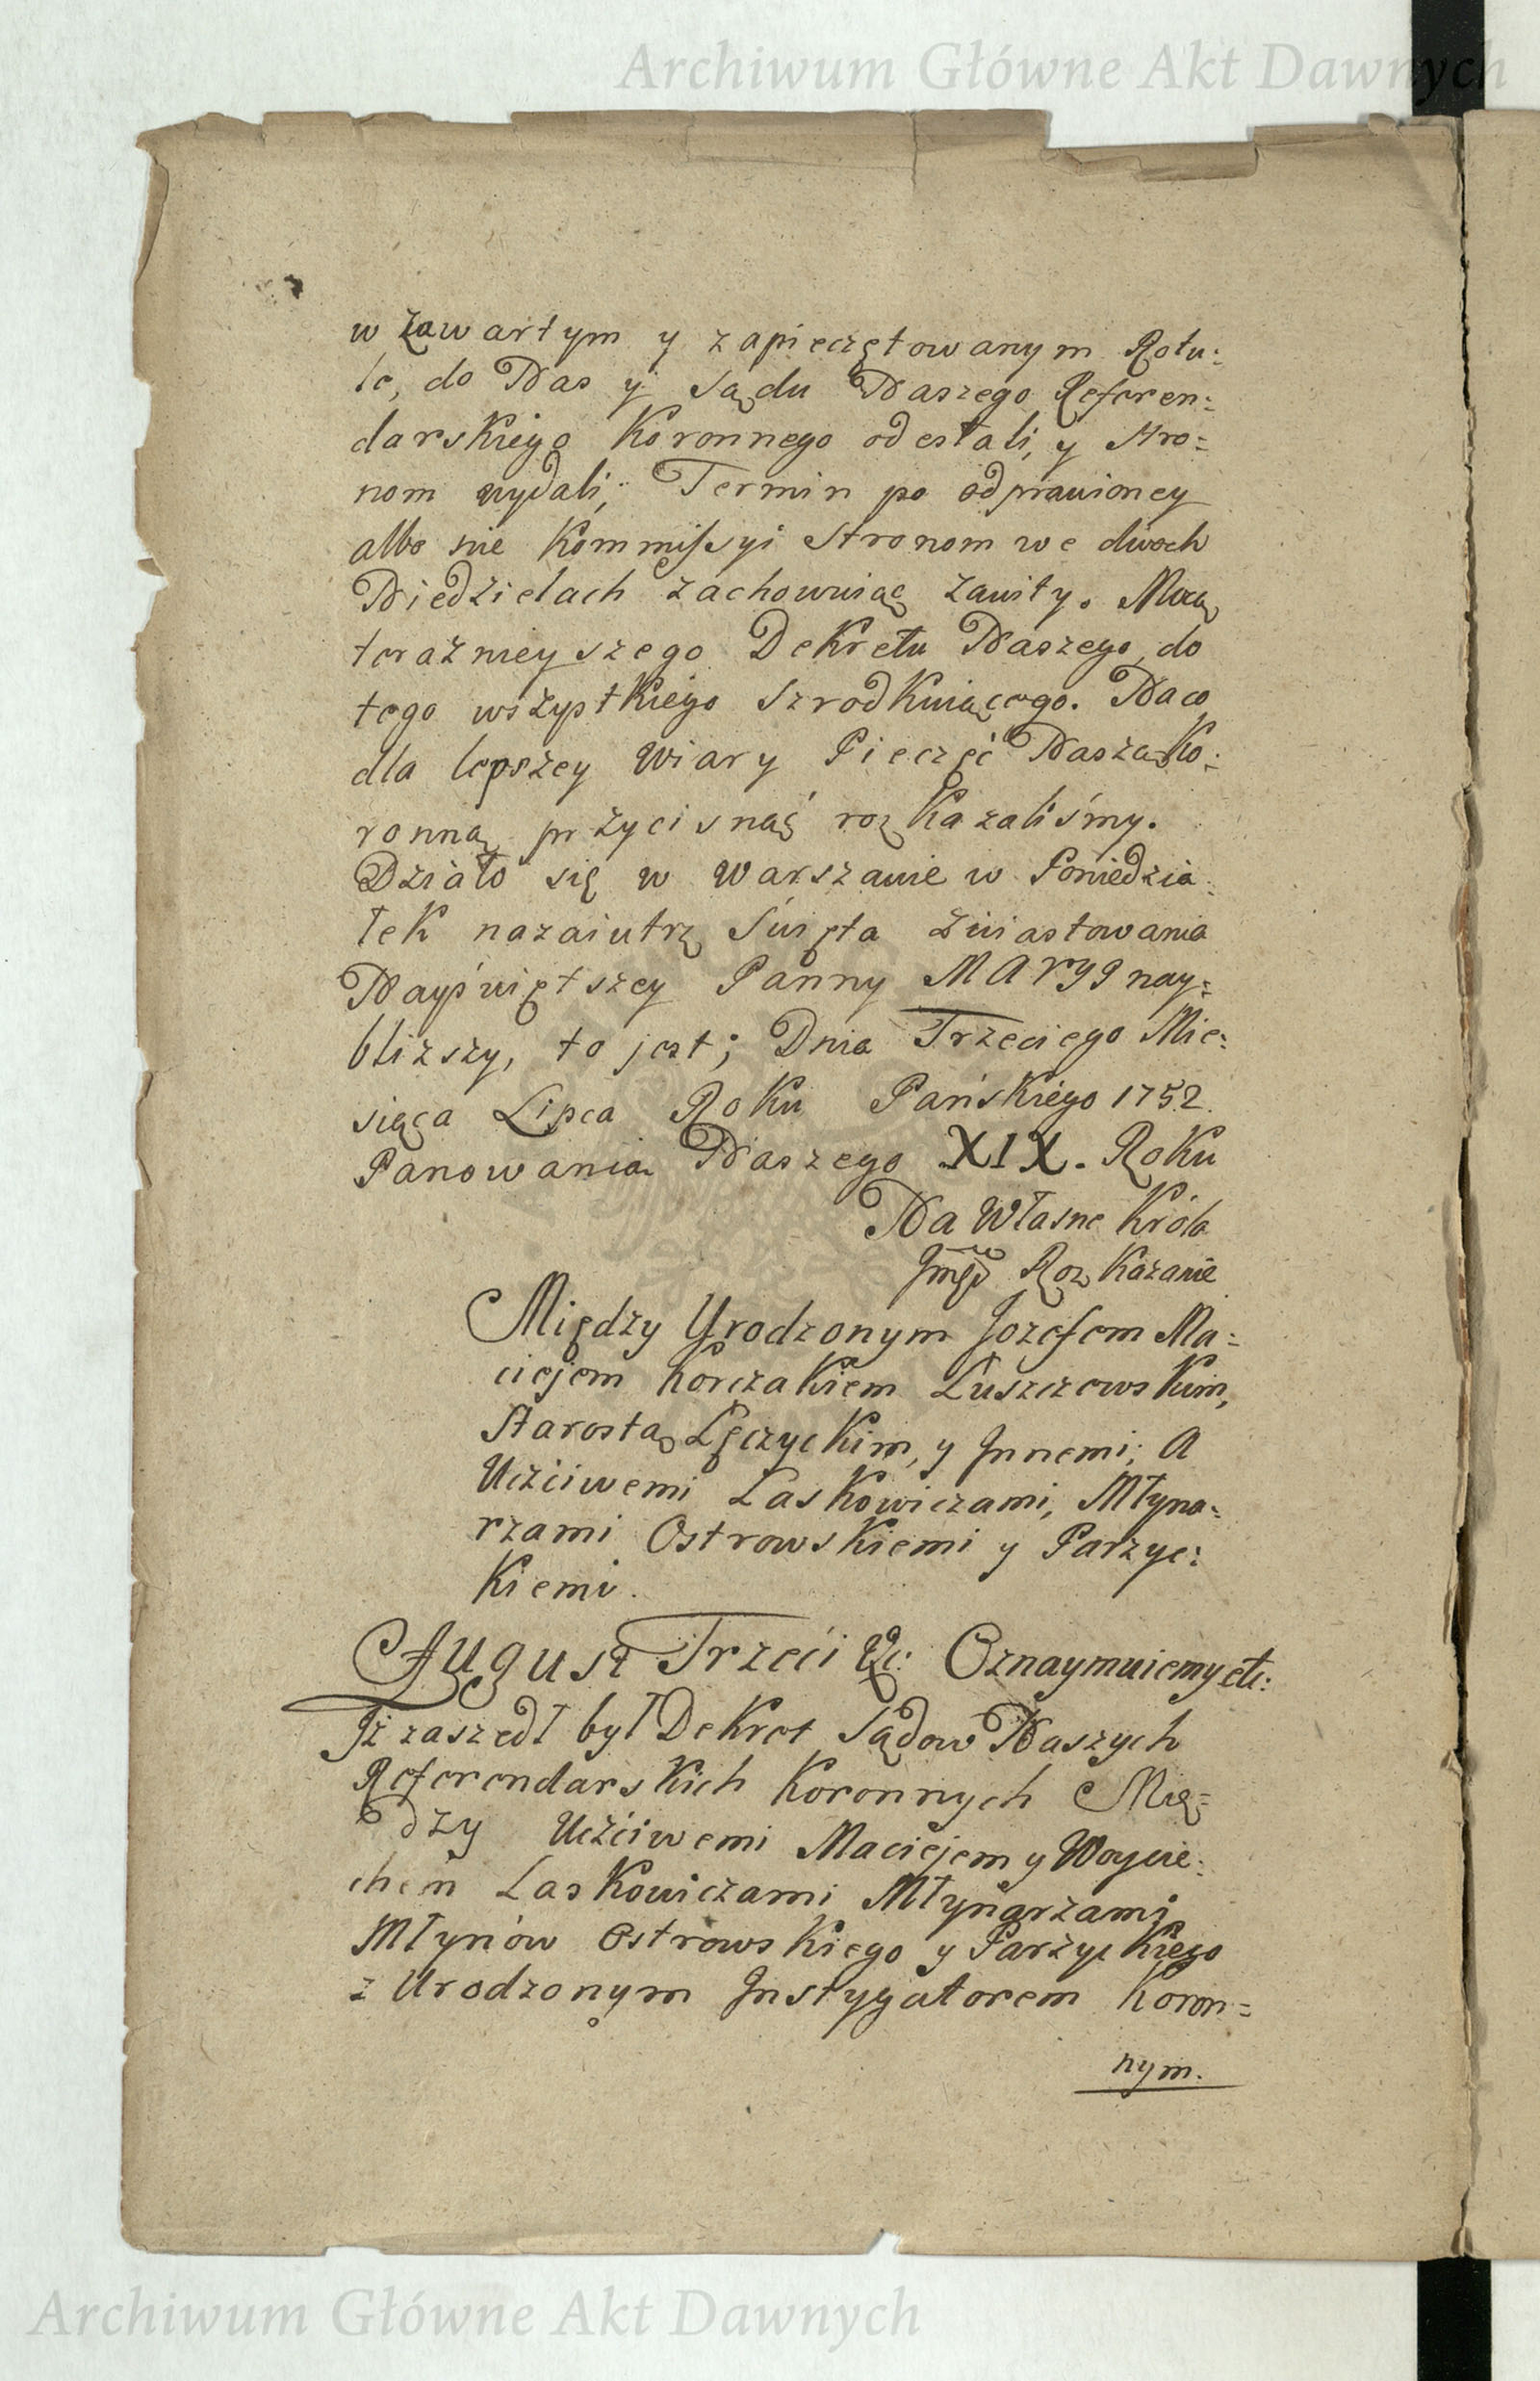 Archiwum Główne Akt Dawnych
w zawartym y zapieczętowanym Rotu:
le, do Nas y Sądu Naszego Referen:
darskiego Koronnego odesłali, y stro:
nom wydali; Termin po odprawioney
albo nie Kommissyi stronom we dwoch
Niedzielach zachowuiąc zawity. Mocą
teraznieyszego Dekretu Naszego, do
tego wszystkiego szrodkuiącego. Naco
dla lepszey Wiary Pieczęć Naszą Ko:
ronną przycisnąć rozkazaliśmy.
Działo się w Warszawie w Poniedzia:
łek nazaiutrz Święta Zwiastowania
Nayświętszey Panny MARYI nay:
bliższy, to jest; Dnia Trzeciego Mie:
siąca Lipca Roku Pańskiego 1752.
Panowania Naszego XIX. Roku
Na Własne Króla
Jmći Rozkazanie
Między Urodzonym Jozefem Ma:
ciejem Korczakiem Łuszczewskim,
Starostą Łęczyckim, y Jnnemi; A
Uczciwemi Laskowiczami, Młyna:
rzami Ostrowskiemi y Parzyc:
kiemi.
August Trzeci &c: Oznaymuiemy etc:
Jż zaszedł był Dekret Sądow Naszych
Referendarskich Koronnych Mię:
dzy Uczciwemi Maciejem y Woycie:
chem Laskowiczami Młynarzami
Młynów Ostrowskiego y Parzyckiego
z Urodzonym Jnstygatorem Koron:
nym.
Archiwum Główne Akt Dawnych